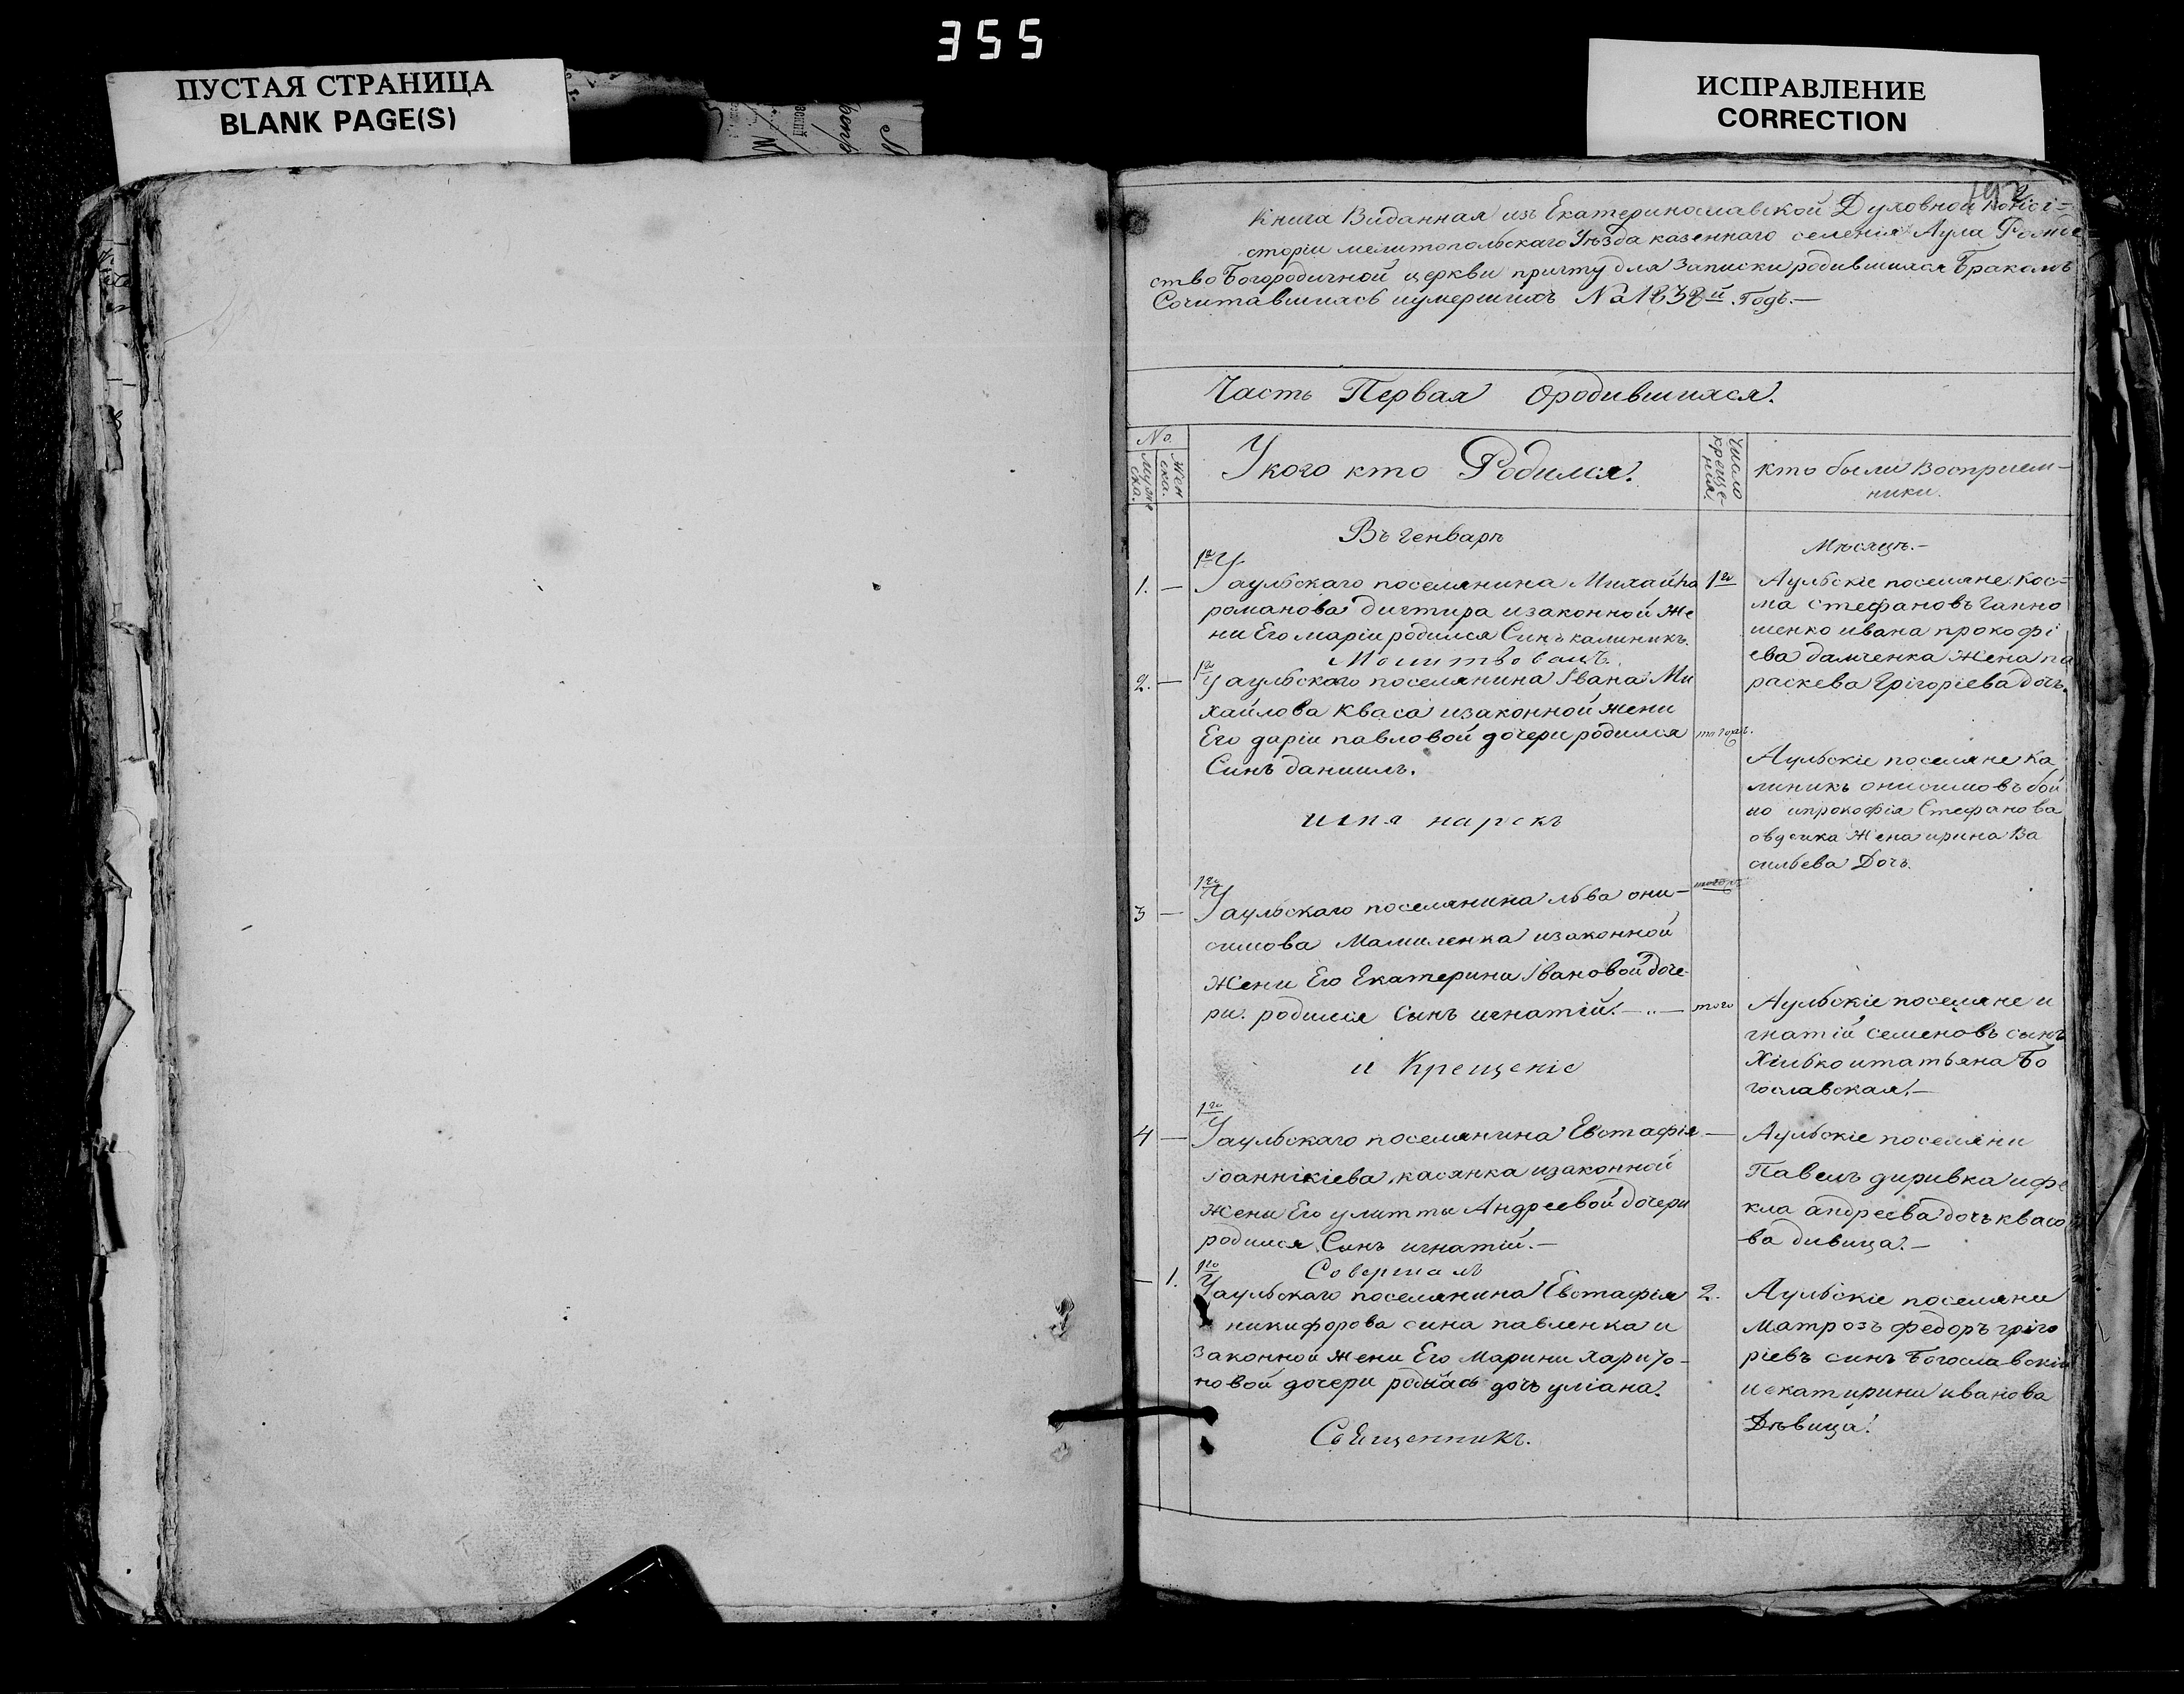 355
ПУСТАЯ СТРАНИЦА
BLANK PAGE(S)
ИСПРАВЛЕНИЕ
CORRECTION
Книга Виданная изъ Екатеринославской Духовной Консі=
сторіи мелитопольскаго Уѣзда казеннаго селенія Аула Рожде
ство Богородичной церкви причту для Записки родившихся Бракомъ
Сочитавшихсь иумершихъ На 1838й Годъ.—
Часть Первая Ородившихся.
No.
Муже
ска.
Жен
ска.
Укого кто Родился.
Число
креще-
нія.
кто были Восприем-
ники.
Въ Генварѣ
Мѣсяцѣ.-
1го
1. — Уаульскаго поселянина Михайла
романова дигтира изаконной Же
ни Его маріи родился Синъ калиникъ.
1го
Аульскіе поселяне Кос=
ма стефановъ Гапно
шенко ивана прокофі
ева далченка Жена па
раскева Григоріева дочь.
Молитвовалъ.
1го
2. — Уаульскаго поселянина Івана Ми
хайлова Кваса изаконной жени
Его даріи павловой дочери родился
Синъ даниилъ.
тогожъ.
Аульскіе поселяне Ка
линикъ онисимовъ бой
ко ипрокофія Стефанова
овдеика Жена ирина Ва
сильева Дочь.
имя нарекъ
1го
3 — Уаульскаго поселянина льва они-
симова Мамиленка изаконной
Жени Его Екатерини Івановой доче-
ри. родился Сынъ игнатій.—"—
того
Аульскіе поселяне и
гнатій семеновъ сынъ
Хилько итатьяна Бо
гославская.—
и Крещеніе
1го
4 — Уаульскаго поселянина Евстафія —
іоаннікіева касянка изаконной
жени Его улитты Андреевой дочери
родился Сынъ игнатій.—
Аульскіе поселяни
Павелъ диривка ифе
кла андреева дочь квасо
ва дивица.—
Совершалъ
1го
— 1. Уаульскаго поселянина Евстафія
никифорова сина павленка и
законной жени Его Марини Харито-
новой дочери родилась дочь уліана.
2.
Аульскіе поселяни
матрозъ федоръ григо
ріевъ синъ Богославскій
иекатирини иванова
Дѣвица.
Священникъ.